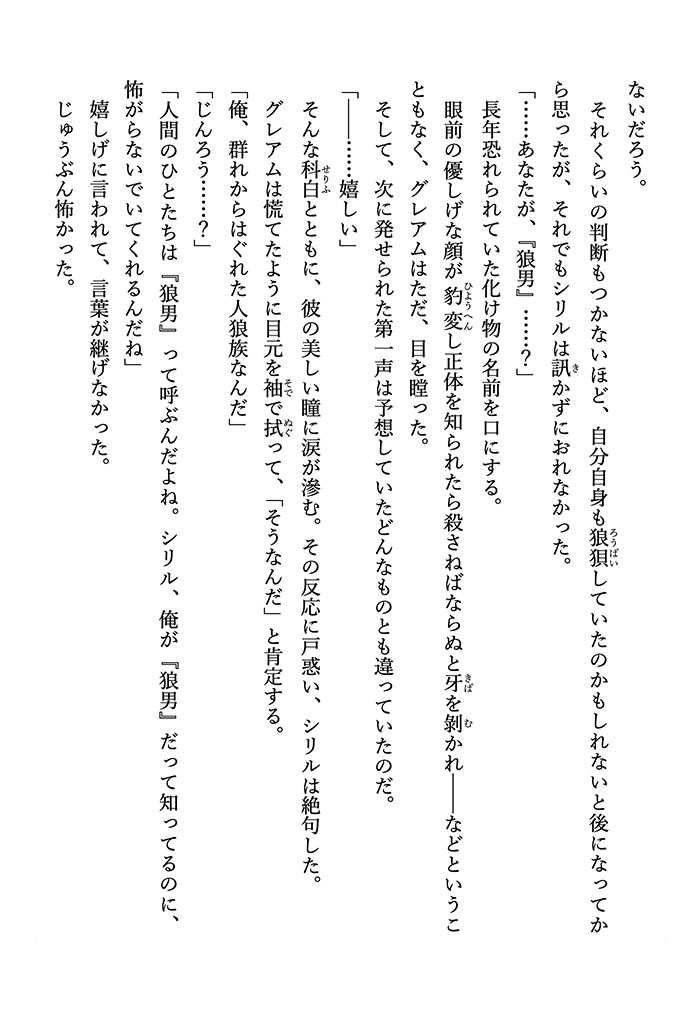 ないだろう。
　それくらいの判断もつかないほど、自分自身も狼狽していたのかもしれないと後になってか
ら思ったが、それでもシリルは訊かずにおれなかった。
「……あなたが、『狼男』……？」
　長年恐れられていた化け物の名前を口にする。
　眼前の優しげな顔が豹変し正体を知られたら殺さねばならぬと牙を剝かれ――などというこ
ともなく、グレアムはただ、目を瞠った。
　そして、次に発せられた第一声は予想していたどんなものとも違っていたのだ。
「――……嬉しい」
　そんな科白とともに、彼の美しい瞳に涙が滲む。その反応に戸惑い、シリルは絶句した。
　グレアムは慌てたように目元を袖で拭って、「そうなんだ」と肯定する。
「俺、群れからはぐれた人狼族なんだ」
「じんろう……？」
「人間のひとたちは『狼男』って呼ぶんだよね。シリル、俺が『狼男』だって知ってるのに、
怖がらないでいてくれるんだね」
　嬉しげに言われて、言葉が継げなかった。
　じゅうぶん怖かった。